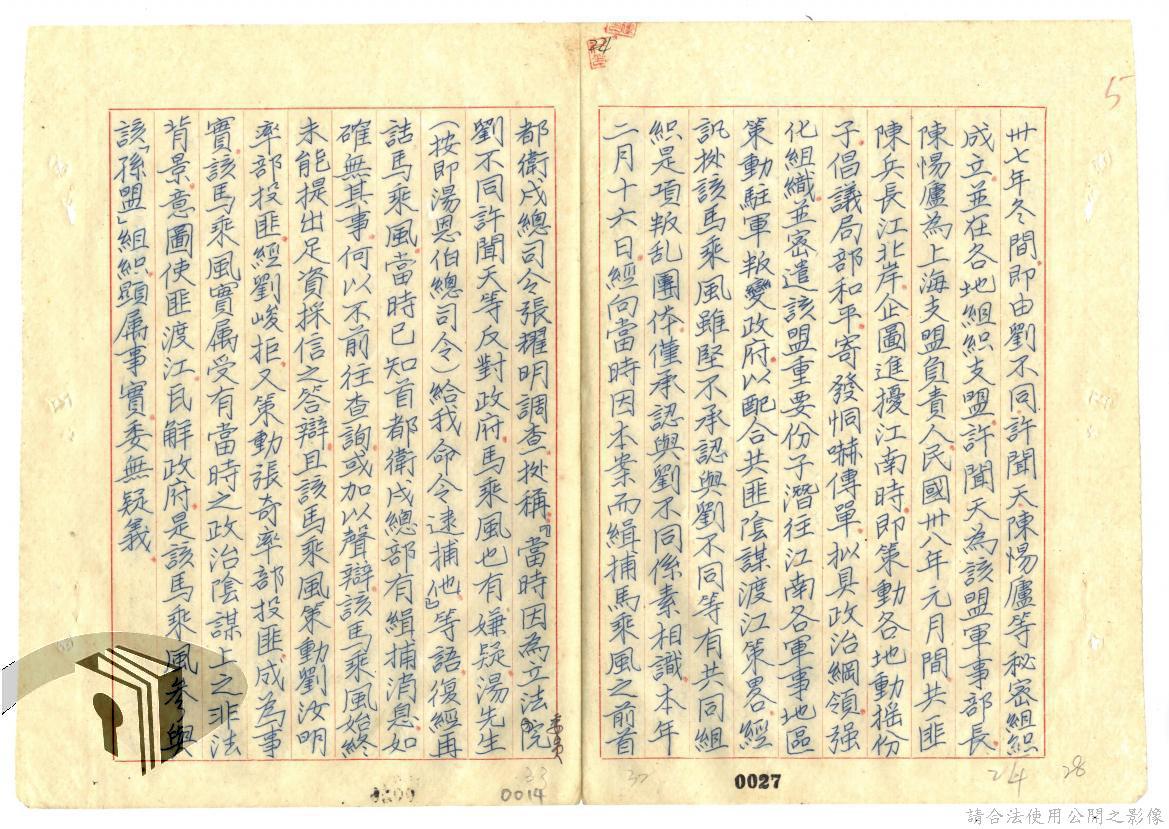 卅七年冬間即由劉不同許聞天陳惕廬等秘密組織
成立並在各地組織支盟許聞天為該盟軍事部長
陳惕廬為上海支盟負責人民國卅八年元月間共匪
陳兵長江北岸企圖進擾江南時即策動各地動搖份
子倡議局部和平寄發恫嚇傳單拟具政治綱領强
化組織並密遣該盟重要份子潛往江南各軍事地區
策動駐軍叛變政府以配合共匪陰謀渡江策畧經
訊拠該馬乘風雖堅不承認與劉不同等有共同組
織是項叛乱團体僅承認與劉不同係素相識本年
二月十六日經向當時因本案而緝捕馬乘風之前首
都衛戍總司令張耀明調查拠稱『當時因為立法院
委員
劉不同許聞天等反對政府馬乘風也有嫌疑湯先生
(按即湯恩伯總司令)給我命令逮捕他』等語復經再
詰馬乘風當時已知首都衛戍總部有緝捕消息如
確無其事何以不前往查詢或加以聲辯該馬乘風始終
未能提出足資採信之答辯且該馬乘風策動劉汝明
率部投匪經劉峻拒又策動張奇率部投匪成為事
實該馬乘風實属受有當時之政治陰謀上之非法
背景意圖使匪渡江瓦解政府是該馬乘風參與
該「孫盟」組織顯属事實委無疑義
5
24
28
0027
32
33
0014
請合法使用公開之影像